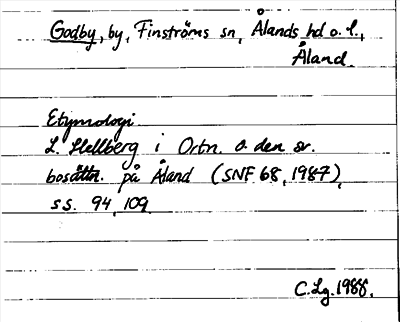 Godby, by, Finströms sn, Ålands hd o. l.,
Åland.
Etymologi
L. Hellberg i Ortn. o. den sv.
bosättn. på Åland (SNF 68, 1987),
ss. 94, 109.
C. Lg. 1988.